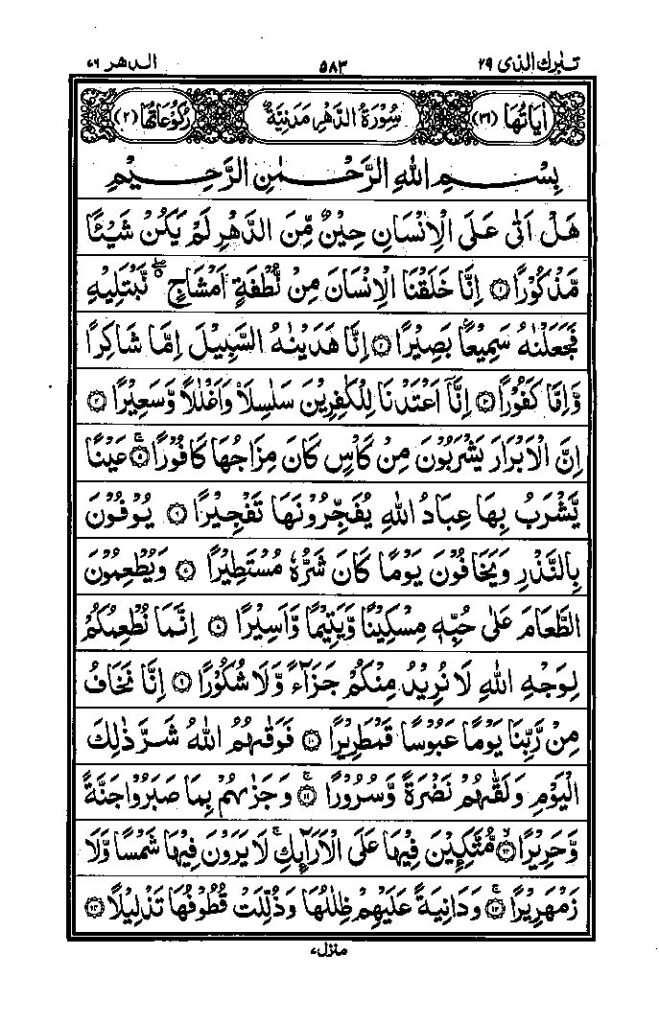 تبٰرك الذى ٢٩ ٥٨٣ الدهر ٧٦
اٰيَاتُهَا (٣١) سُوْرَةُ الدَّهْرِ مَدَنِيَّةٌ رُكُوْعَاتُهَا (٢)
بِسْمِ اللهِ الرَّحْمٰنِ الرَّحِيْمِ
هَلْ اَتٰى عَلَى الْاِنْسَانِ حِيْنٌ مِّنَ الدَّهْرِ لَمْ يَكُنْ شَيْئًا
مَّذْكُوْرًا ۝١ اِنَّا خَلَقْنَا الْاِنْسَانَ مِنْ نُّطْفَةٍ اَمْشَاجٍ ۖ نَّبْتَلِيْهِ
فَجَعَلْنٰهُ سَمِيْعًۢا بَصِيْرًا ۝٢ اِنَّا هَدَيْنٰهُ السَّبِيْلَ اِمَّا شَاكِرًا
وَّاِمَّا كَفُوْرًا ۝٣ اِنَّاۤ اَعْتَدْنَا لِلْكٰفِرِيْنَ سَلٰسِلَا۟ وَاَغْلٰلًا وَّسَعِيْرًا ۝٤
اِنَّ الْاَبْرَارَ يَشْرَبُوْنَ مِنْ كَاْسٍ كَانَ مِزَاجُهَا كَافُوْرًا ۝٥ۚ عَيْنًا
يَّشْرَبُ بِهَا عِبَادُ اللهِ يُفَجِّرُوْنَهَا تَفْجِيْرًا ۝٦ يُوْفُوْنَ
بِالنَّذْرِ وَيَخَافُوْنَ يَوْمًا كَانَ شَرُّهٗ مُسْتَطِيْرًا ۝٧ وَيُطْعِمُوْنَ
الطَّعَامَ عَلٰى حُبِّهٖ مِسْكِيْنًا وَّيَتِيْمًا وَّاَسِيْرًا ۝٨ اِنَّمَا نُطْعِمُكُمْ
لِوَجْهِ اللهِ لَا نُرِيْدُ مِنْكُمْ جَزَآءً وَّلَا شُكُوْرًا ۝٩ اِنَّا نَخَافُ
مِنْ رَّبِّنَا يَوْمًا عَبُوْسًا قَمْطَرِيْرًا ۝١٠ فَوَقٰىهُمُ اللهُ شَرَّ ذٰلِكَ
الْيَوْمِ وَلَقّٰىهُمْ نَضْرَةً وَّسُرُوْرًا ۝١١ۚ وَجَزٰىهُمْ بِمَا صَبَرُوْا جَنَّةً
وَّحَرِيْرًا ۝١٢ۙ مُّتَّكِـِٕيْنَ فِيْهَا عَلَى الْاَرَآئِكِ ۚ لَا يَرَوْنَ فِيْهَا شَمْسًا وَّلَا
زَمْهَرِيْرًا ۝١٣ۚ وَدَانِيَةً عَلَيْهِمْ ظِلٰلُهَا وَذُلِّلَتْ قُطُوْفُهَا تَذْلِيْلًا ۝١٤
منزل ٧